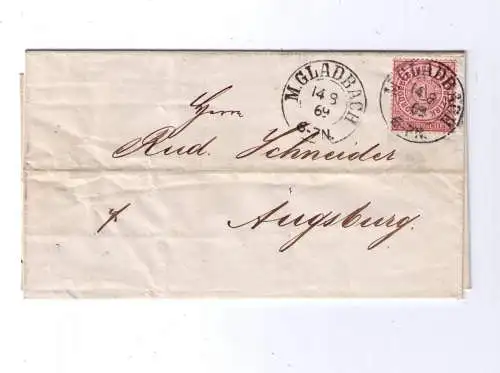 M. GLADBACH
14 9
69
6-7N.
M. GLADBACH
14 9
69
6-7N.
Herrn
Rud. Schneider
Augsburg.